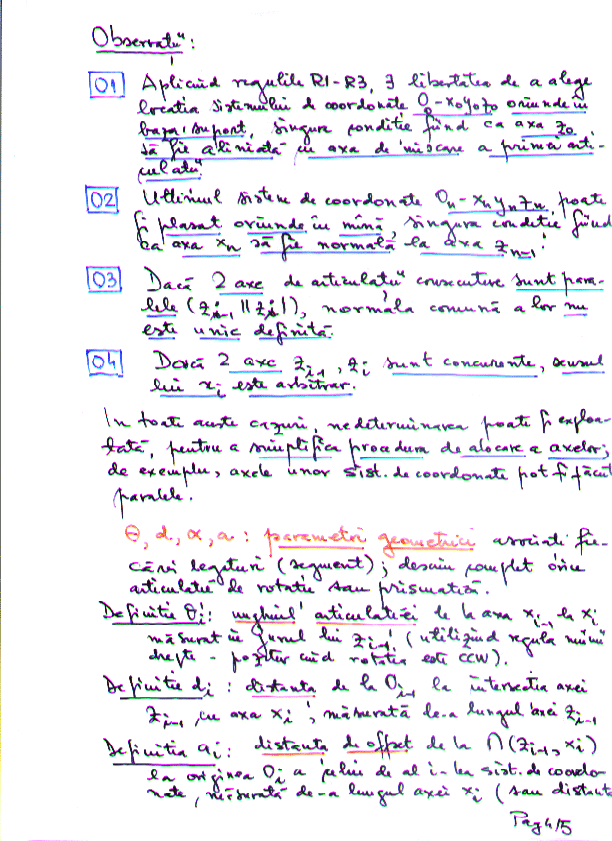 Observații:
O1 Aplicând regulile R1-R3, ∃ libertatea de a alege
locația sistemului de coordonate O₀-x₀y₀z₀ oriunde în
baza suport, singura condiție fiind ca axa z₀
să fie aliniată cu axa de mișcare a primei arti-
culații.
O2 Ultimul sistem de coordonate Oₙ-xₙyₙzₙ, poate
fi plasat oriunde în mână, singura condiție fiind
ca axa xₙ să fie normală la axa zₙ₋₁.
O3 Dacă 2 axe de articulații consecutive sunt para-
lele (zᵢ₋₁ || zᵢ), normala comună a lor nu
este unic definită.
O4 Dacă 2 axe zᵢ₋₁, zᵢ sunt concurente, sensul
lui xᵢ este arbitrar.
In toate aceste cazuri, nedeterminarea poate fi exploa-
tată, pentru a simplifica procedura de alocare a axelor;
de exemplu, axele unor sist. de coordonate pot fi făcut
paralele.
θ, d, α, a : parametri geometrici asociați fie-
cărei legături (segment); descriu complet orice
articulație de rotație sau prismatică.
Definiție θᵢ: unghiul articulației de la axa xᵢ₋₁ la xᵢ
măsurat în jurul lui zᵢ₋₁ (utilizând regula mâinii
drepte - pozitiv când rotația este CCW).
Definiție dᵢ : distanța de la Oᵢ₋₁ la intersecția axei
zᵢ₋₁ cu axa xᵢ, măsurată de-a lungul axei zᵢ₋₁
Definiția aᵢ: distanța de offset de la ∩(zᵢ₋₁, xᵢ)
la originea Oᵢ a celui de al i-lea sist. de coordo-
nate, măsurată de-a lungul axei xᵢ (sau distanța
Pag 4/5